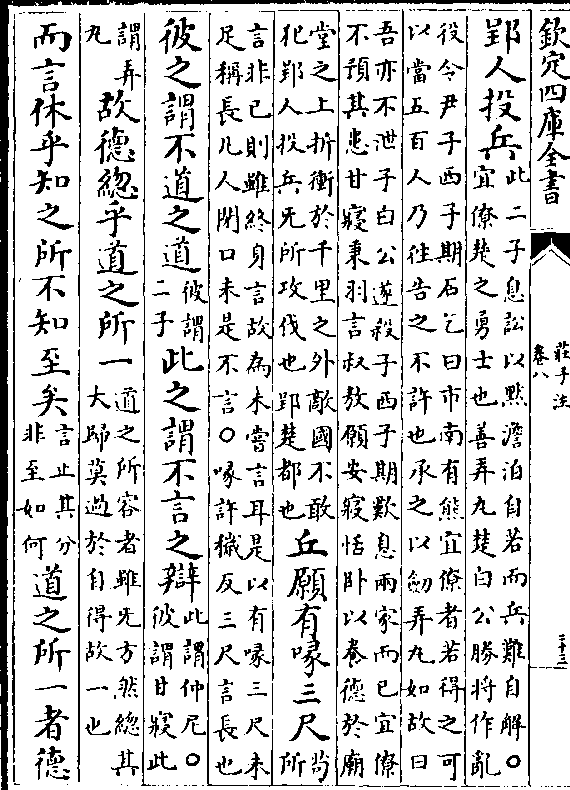 欽定四庫全書
莊子注
卷八
三十三
郢人投兵此二子息訟以黙澹泊自若而兵難自解○宜僚楚之勇士也善弄丸楚白公勝將作亂
役令尹子西子期石乞曰市南有熊宜僚者若得之可以當五百人乃往告之不許也承之以劒弄丸如故曰
吾亦不泄子白公遂殺子西子期歎息兩家而已宜僚不預其患甘寢秉羽言叔敖願安寢恬卧以養德於廟
堂之上折衝於千里之外敵國不敢犯郢人投兵无所攻伐也郢楚都也丘願有喙三尺苟所
言非己則雖終身言故為未嘗言耳是以有喙三尺未足稱長凡人閉口未是不言○喙許穢反三尺言長也
彼之謂不道之道彼謂二子此之謂不言之辯此謂仲尼○彼謂甘寢此
謂弄丸故德總乎道之所一道之所容者雖无方然總其大歸莫過於自得故一也
而言休乎知之所不知至矣言止其分非至如何道之所一者德